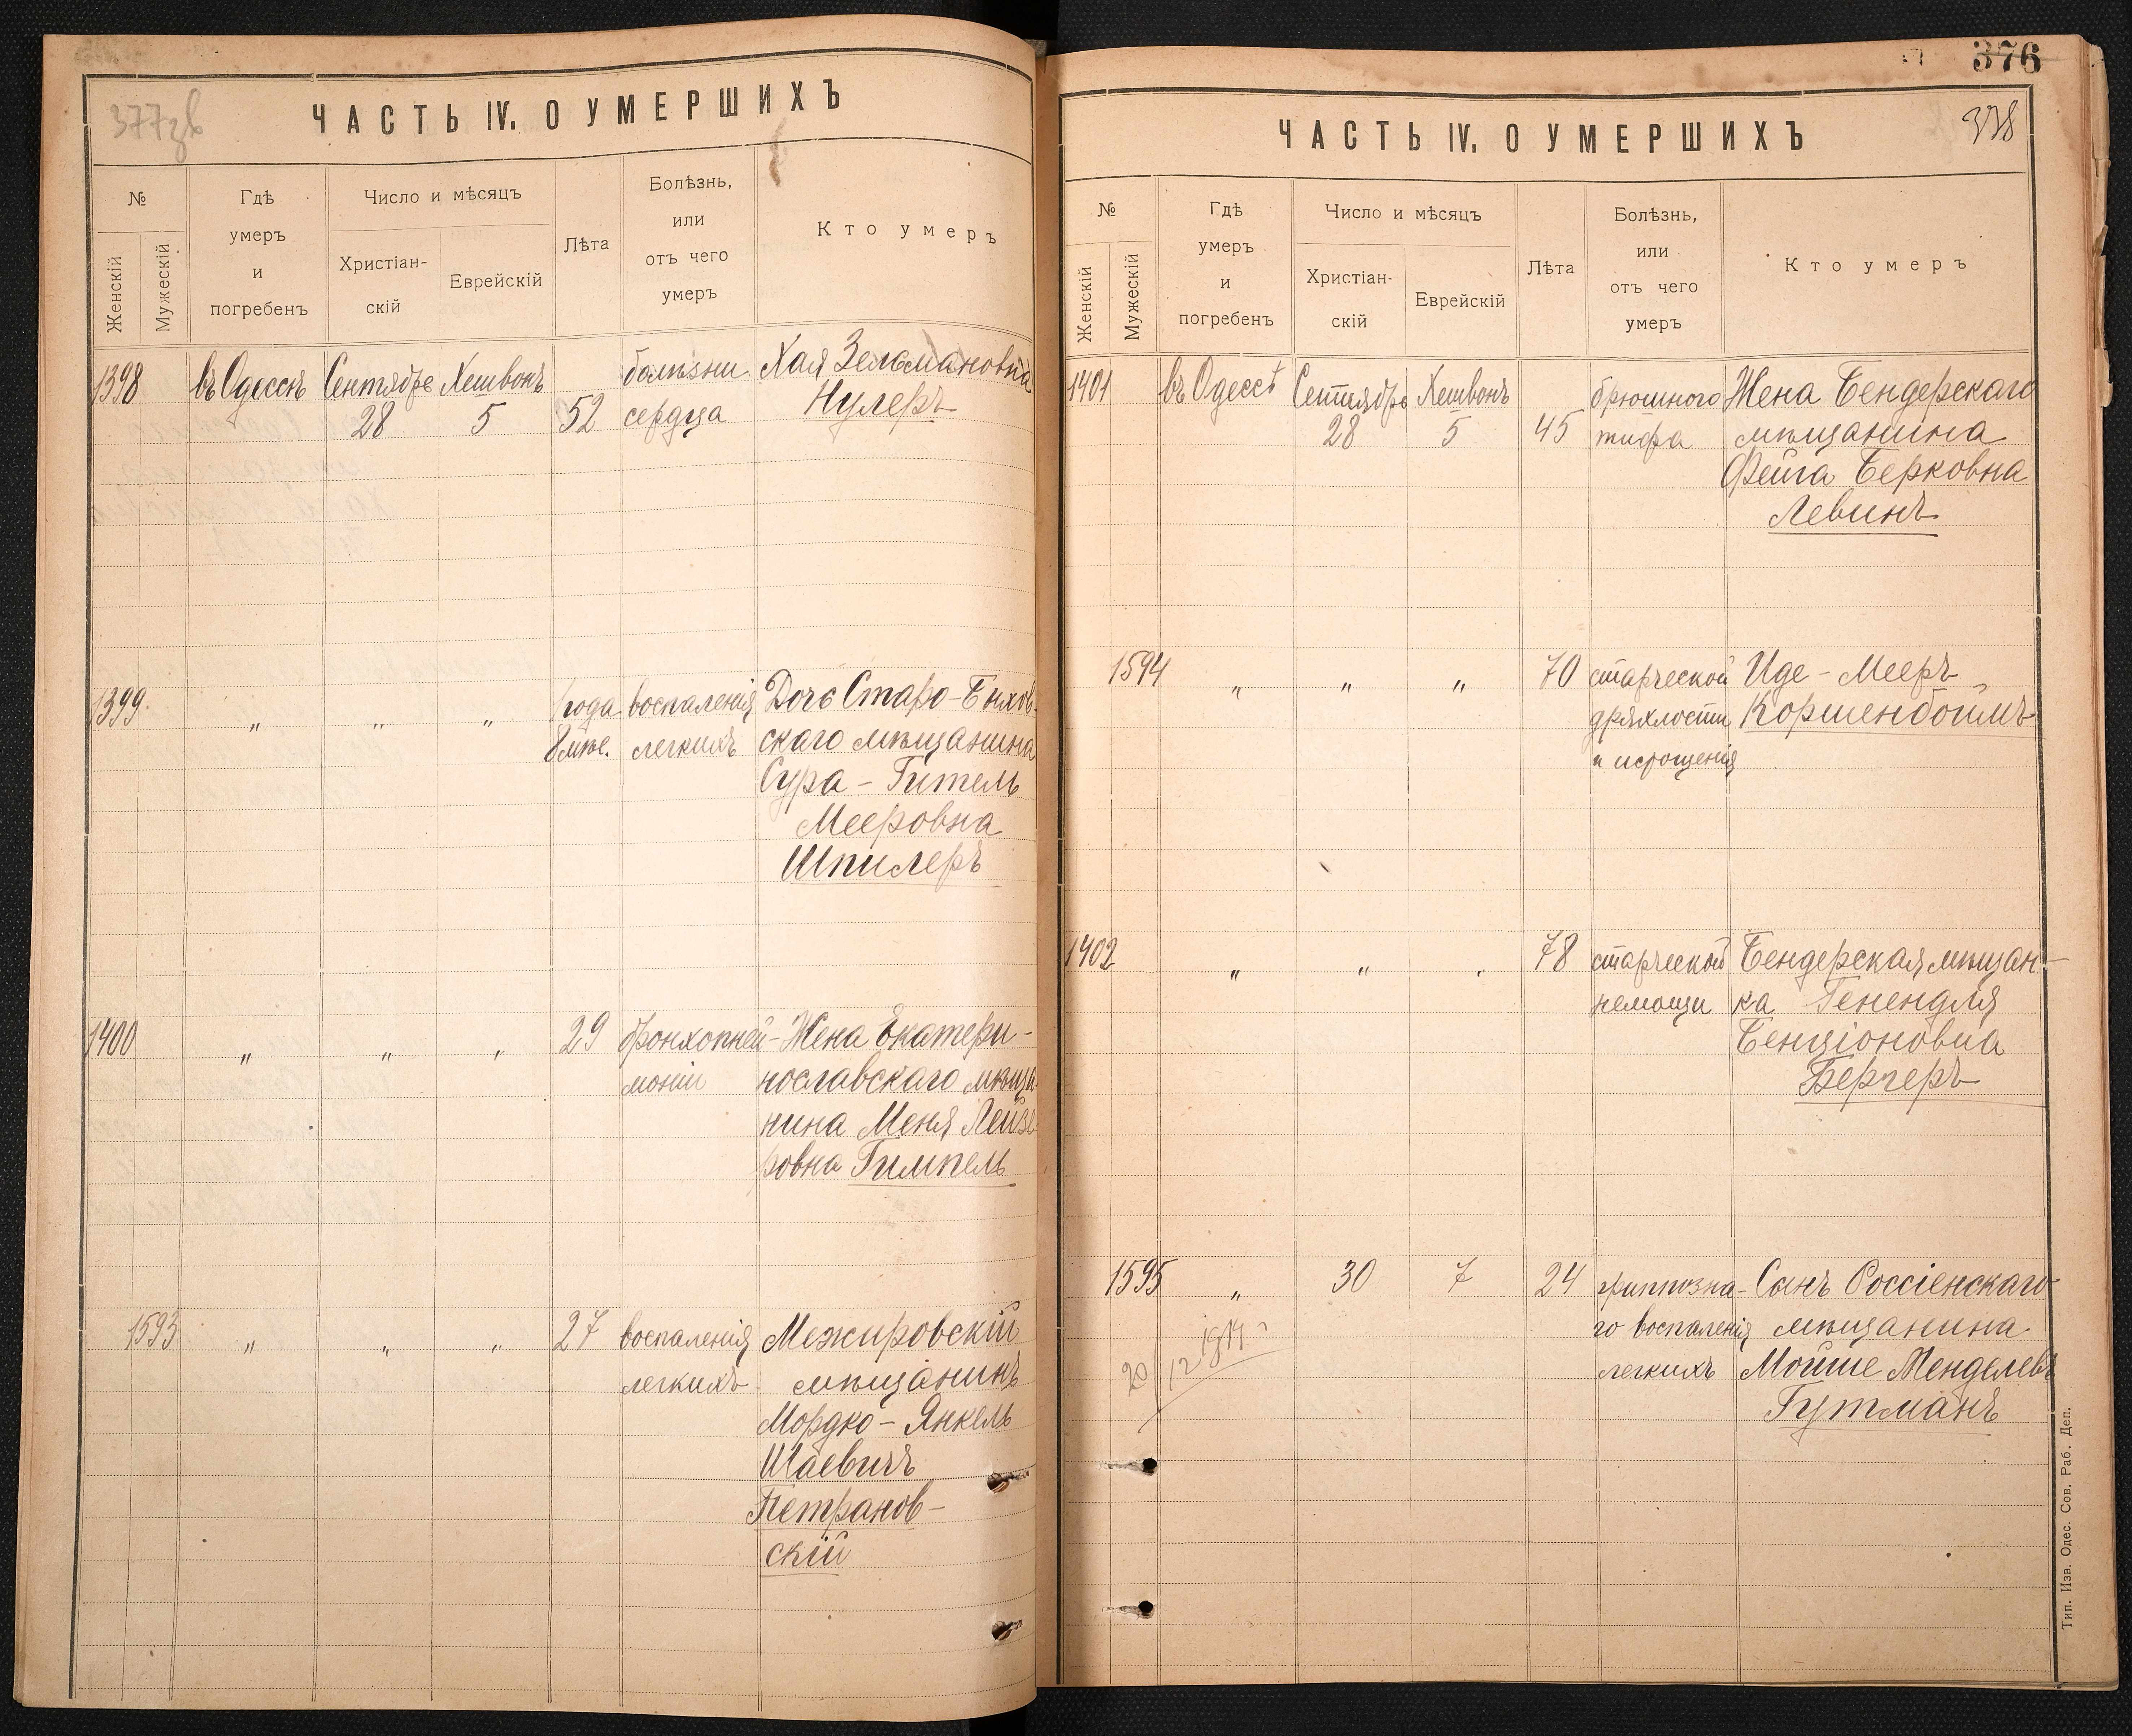 377зв
ЧАСТЬ IV. О УМЕРШИХЪ
№
Женскій
Мужескій
Гдѣ
умеръ
и
погребенъ
Число и мѣсяцъ
Христіан-
скій
Еврейскій
Лѣта
Болѣзнь,
или
отъ чего
умеръ
Кто умеръ
1398 въ Одессѣ Сентябрь Хешвонъ болѣзни Хая Зельмановна
28 5 52 сердца Нулеръ
1399 " " " 1 года воспаленія Дочь Старо-Бихов-
8 мѣс. легкихъ скаго мѣщанина
Сура-Гитель
Мееровна
Шпилеръ
1400 " " " 29 бронхопней- Жена Екатери-
моніи нославскаго мѣща-
нина Меня Лейзе
ровна Гимпель
1593 " " " 27 воспаленія Межировскій
легкихъ мѣщанинъ
Мордко-Янкель
Шаевичъ
Петранов-
скій
376
378
ЧАСТЬ IV. О УМЕРШИХЪ
№
Женскій
Мужескій
Гдѣ
умеръ
и
погребенъ
Число и мѣсяцъ
Христіан-
скій
Еврейскій
Лѣта
Болѣзнь,
или
отъ чего
умеръ
Кто умеръ
1401 въ Одессѣ Сентябрь Хешвонъ брюшного Жена Бендерскаго
28 5 45 тифа мѣщанина
Фейга Берковна
Левинъ
1594 " " " 70 старческой Иде-Мееръ
дряхлости Коршенбоймъ
и истощенія
1402 " " " 78 старческой Бендерская мѣщан-
немощи ка Генендля
Бенціоновна
Бергеръ
1595 " 30 7 24 гриппозна- Сынъ Россіенскаго
го воспаленія мѣщанина
легкихъ Мойше Менделевъ
Гутманъ
20/12 1919
Тип. Изв. Одес. Сов. Раб. Деп.